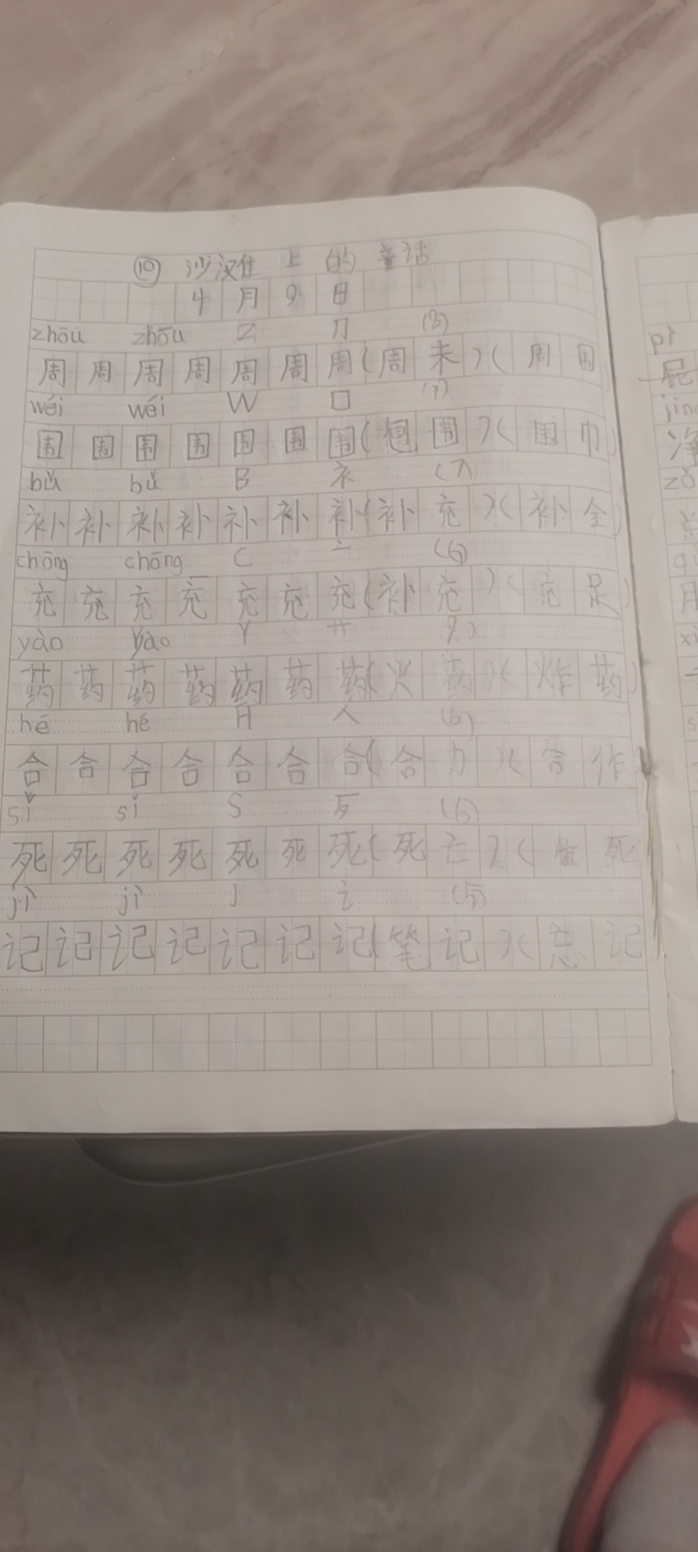 ⑩ 沙滩上的童话
4月9日
zhōu zhōu Z 冂 (8)
周周周周周周周(周末)(周围
wéi wéi W 囗 (7)
围围围围围围围(包围)(围巾)
bǔ bǔ B 衤 (7)
补补补补补补补(补充)(补全)
chōng chōng C 亠 (6)
充充充充充充充(补充)(充足)
yào yào Y 艹 9)
药药药药药药药(火药)(炸药)
hé hé H 人 (6)
合合合合合合合(合力)(合作
sǐ sǐ S 歹 (6)
死死死死死死死(死亡)(死
jì jì J 讠 (5)
记记记记记记记(笔记)(忘记
pì
屁
jìng
净
zǒ